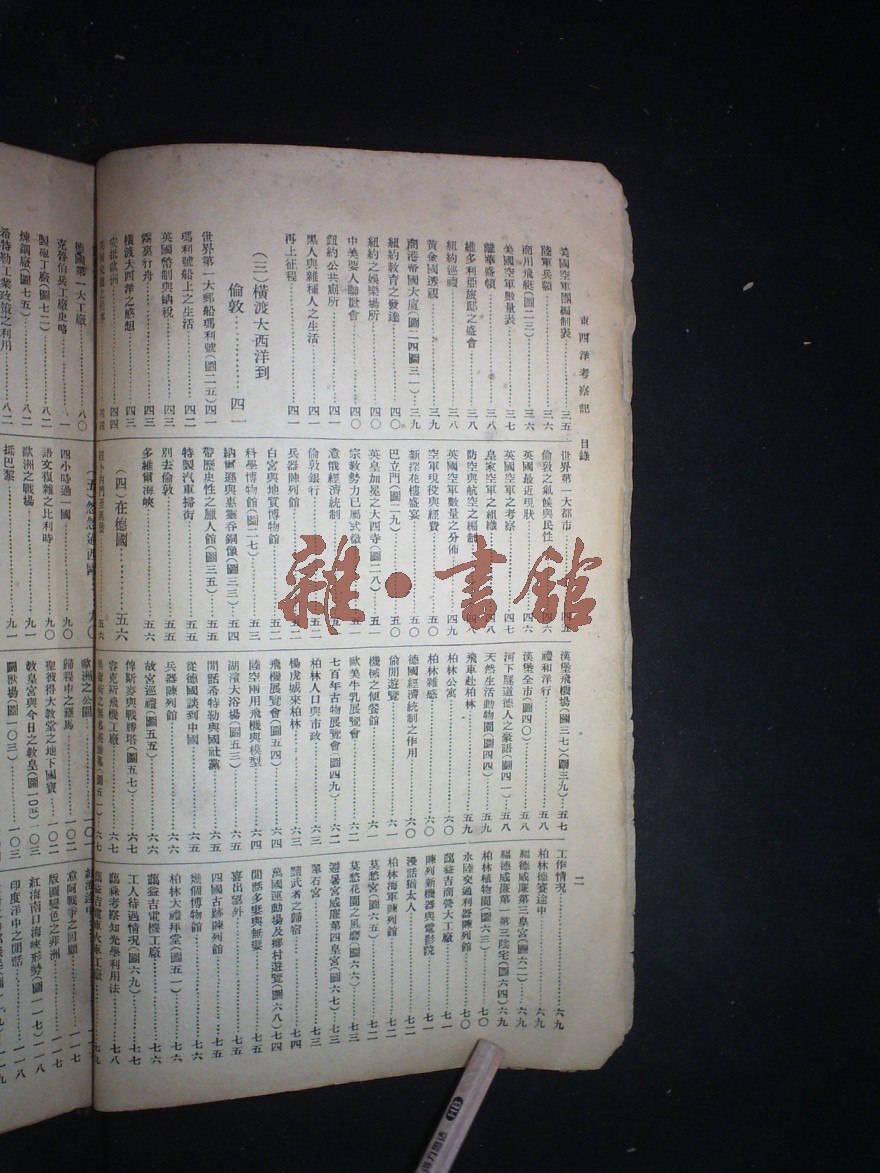 東西洋考察記 目錄
二
美國空軍團編制表……三五
陸軍兵額……三六
南川飛艇(圖二三)……三六
美國空軍數量表……三七
離華盛頓……三八
維多利亞旅邸之盛會……三八
紐約巡禮……三八
黃金國透視……三九
南港帝國大廈(圖二四圖三一)三九
紐約教育之發達……四〇
紐約之娛樂場所……四〇
中美要人聯歡會……四〇
紐約公共廁所……四一
黑人與雜種人之生活……四一
再上征程……四一
(三)橫渡大西洋到
倫敦……四一
世界第一大郵船瑪利號(圖二五)四一
瑪利號船上之生活……四二
英國幣制與納稅……四三
霧裏行舟……四三
橫渡大西洋之感想……四三
安抵歐洲……四四
世界第一大都市……四五
倫敦之氣候與民性……四六
英國最近現狀……四六
英國空軍之考察……四七
皇家空軍之組織……四八
防空與航空之編制……四八
英國空軍數量之分佈……四九
空軍現役與經費
新探花樓盛宴……五〇
巴立門(圖二九)……五〇
英皇加冕之大西寺(圖二八)……五一
宗教勢力已屬式微
意俄經濟統制
倫敦銀行……五二
兵器陳列館……五二
白宮與地質博物館……五三
科學博物館(圖二七)……五三
納爾遜與惠靈吞銅像(圖三三)……五四
帶歷史性之臘人館(圖三五)……五五
特製汽車掃街……五五
別去倫敦……五五
多維爾海峽……五六
(四)在德國……五六
漢堡飛機場(圖三七)(圖三九)……五七
禮和洋行……五八
漢堡全市(圖四〇)……五八
河下隧道德人之豪語(圖四一)……五八
天然生活動物園(圖四四)……五九
飛車赴柏林……五九
柏林公寓……六〇
柏林雜感……六〇
德國經濟統制之作用……六〇
偷閒遊覽……六一
機械之便餐館……六一
歐美牛乳展覽會……六二
七百年古物展覽會(圖四九)……六二
柏林人口與市政……六三
楊虎城來柏林……六三
飛機展覽會(圖五四)……六四
陸空兩用飛機與模型……六四
湖濱大浴場(圖五三)……六五
閒話希特勒與國社黨……六五
從德國談到中國……六五
兵器陳列館……六六
故宮巡禮(圖五五)……六六
俾斯麥與戰勝塔(圖五七)……六七
容克斯飛機工廠……六七
工作情況……六九
柏林德賽途中……六九
福德威廉第三皇宮(圖六二)……六九
福德威廉第一第三陵宅(圖六四)六九
柏林植物園(圖六三)……七〇
水陸交通利器陳列館……七〇
藹益吉商營大工廠……七一
陳列新機器與電影院……七一
漫話猶太人……七二
柏林海軍陳列館……七二
莫愁宮(圖六五)……七二
莫愁花園之風磨(圖六六)……七三
避暑宮威廉第四皇宮(圖六七)……七三
翠石宮……七三
黷武者之歸宿……七四
萬國運動場及鄉村遊覽(圖六八)七四
閒話多妻與無妻……七五
喜出望外……七五
四國古跡陳列館……七六
進個博物館……七六
柏林大禮拜堂(圖五一)……七六
藹益吉電機工廠……七六
工人待遇情況(圖六九)……七七
臨森考察知光學利用法……七八
德國第一大工廠……八〇
克魯伯兵工廠史略
製砲工廠(圖七二)……八一
煉鋼廠(圖七五)……八二
希特勒工業政策之利用……八二
(五)忽忽過西歐……九〇
四小時過一國……九〇
語文複雜之比利時……九〇
歐洲之戰場……九一
抵巴黎……九一
歐洲之公園……一〇二
歸程中之羅馬……一〇二
聖彼得大教堂之地下國寶……一〇二
教皇宮與今日之教皇(圖一〇五)……一〇三
鬭獸場(圖一〇三)……一〇三
意阿戰爭之回顧……一一七
版圖變色之非洲……一一七
紅海南口海峽形勢(圖一一七)……一一八
印度洋中之閒話……一一八
雜·書館
HB